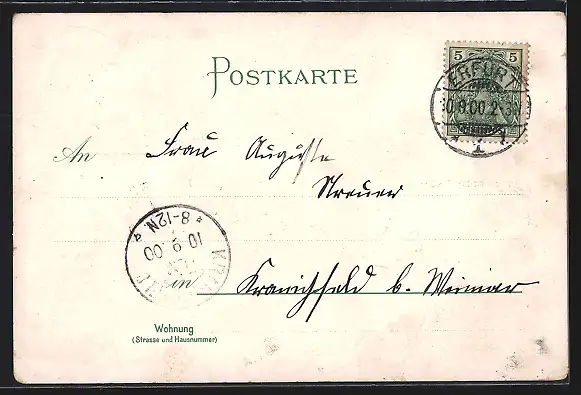 POSTKARTE
5 5
ERFURT
10.9.00.2-3N
1
An Frau Auguste
Streuer
* 8-12N. a
10 9 00
KRA
in Kranichfeld b. Weimar
Wohnung
(Strasse und Hausnummer)